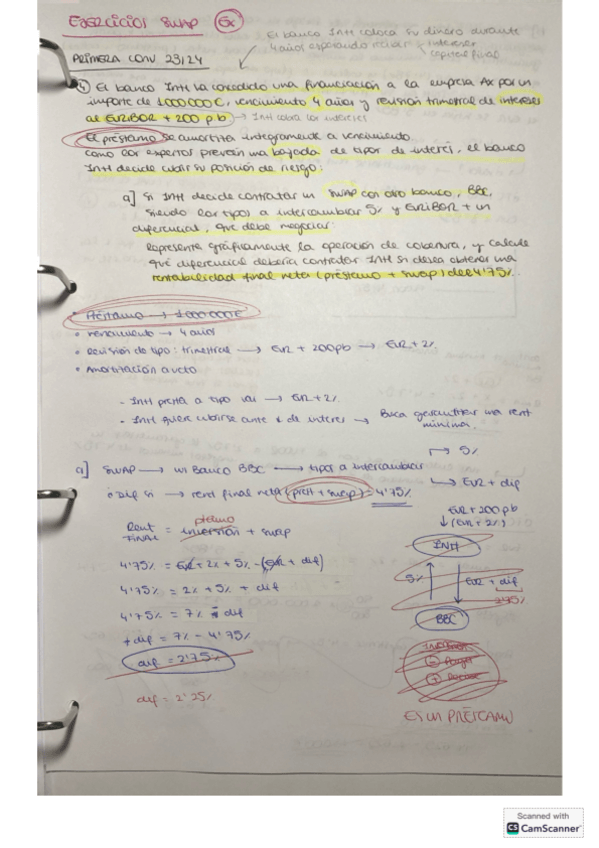 EJERCICIOS SWAP Ex
El banco INH coloca su dinero durante
4 años esperando recibir intereses
capital final
PRIMERA CONV 23/24
4) El banco INH ha concedido una financiación a la empresa Ax por un
importe de 1.000.000 €, vencimiento 4 años y revisión trimestral de intereses
al EURIBOR + 200 p.b → INH cobra los intereses
El préstamo se amortiza íntegramente a vencimiento.
como los expertos prevén una bajada de tipos de interés, el banco
INH decide cubrir su posición de riesgo:
a] Si INH decide contratar un SWAP con otro banco, BBC,
siendo los tipos a intercambiar 5% y EURIBOR + un
diferencial, que debe negociar:
Represente gráficamente la operación de cobertura, y calcule
qué diferencial debería contratar INH si desea obtener una
rentabilidad final neta (préstamo + swap) del 4'75%.
• Préstamo → 1.000.000€
• Vencimiento → 4 años
• Revisión de tipo: trimestral → EUR + 200pb → EUR + 2%
• Amortización a vcto
- INH presta a tipo var → EUR + 2%
- INH quiere cubrirse ante ↓ de interes → Busca garantizar una rent
mínima.
→ 5%
a] SWAP → w/ Banco BBC → tipos a intercambiar
→ EUR + dif
¿Dif si → rent final neta (prest + swap) = 4'75%
EUR + 200pb
↓ (EUR + 2%)
ptamo
Rent FINAL = inversión + swap
INH
4'75% = EUR + 2% + 5% - (EUR + dif)
5% EUR + dif
2'25%
4'75% = 2% + 5% + dif
4'75% = 7% - dif
BBC
+ dif = 7% - 4'75%
dif = 2'75%
INVERSIÓN
- Pagar
+ Recibe
dif = 2'25%
ES UN PRÉSTAMO
Scanned with
CS CamScanner